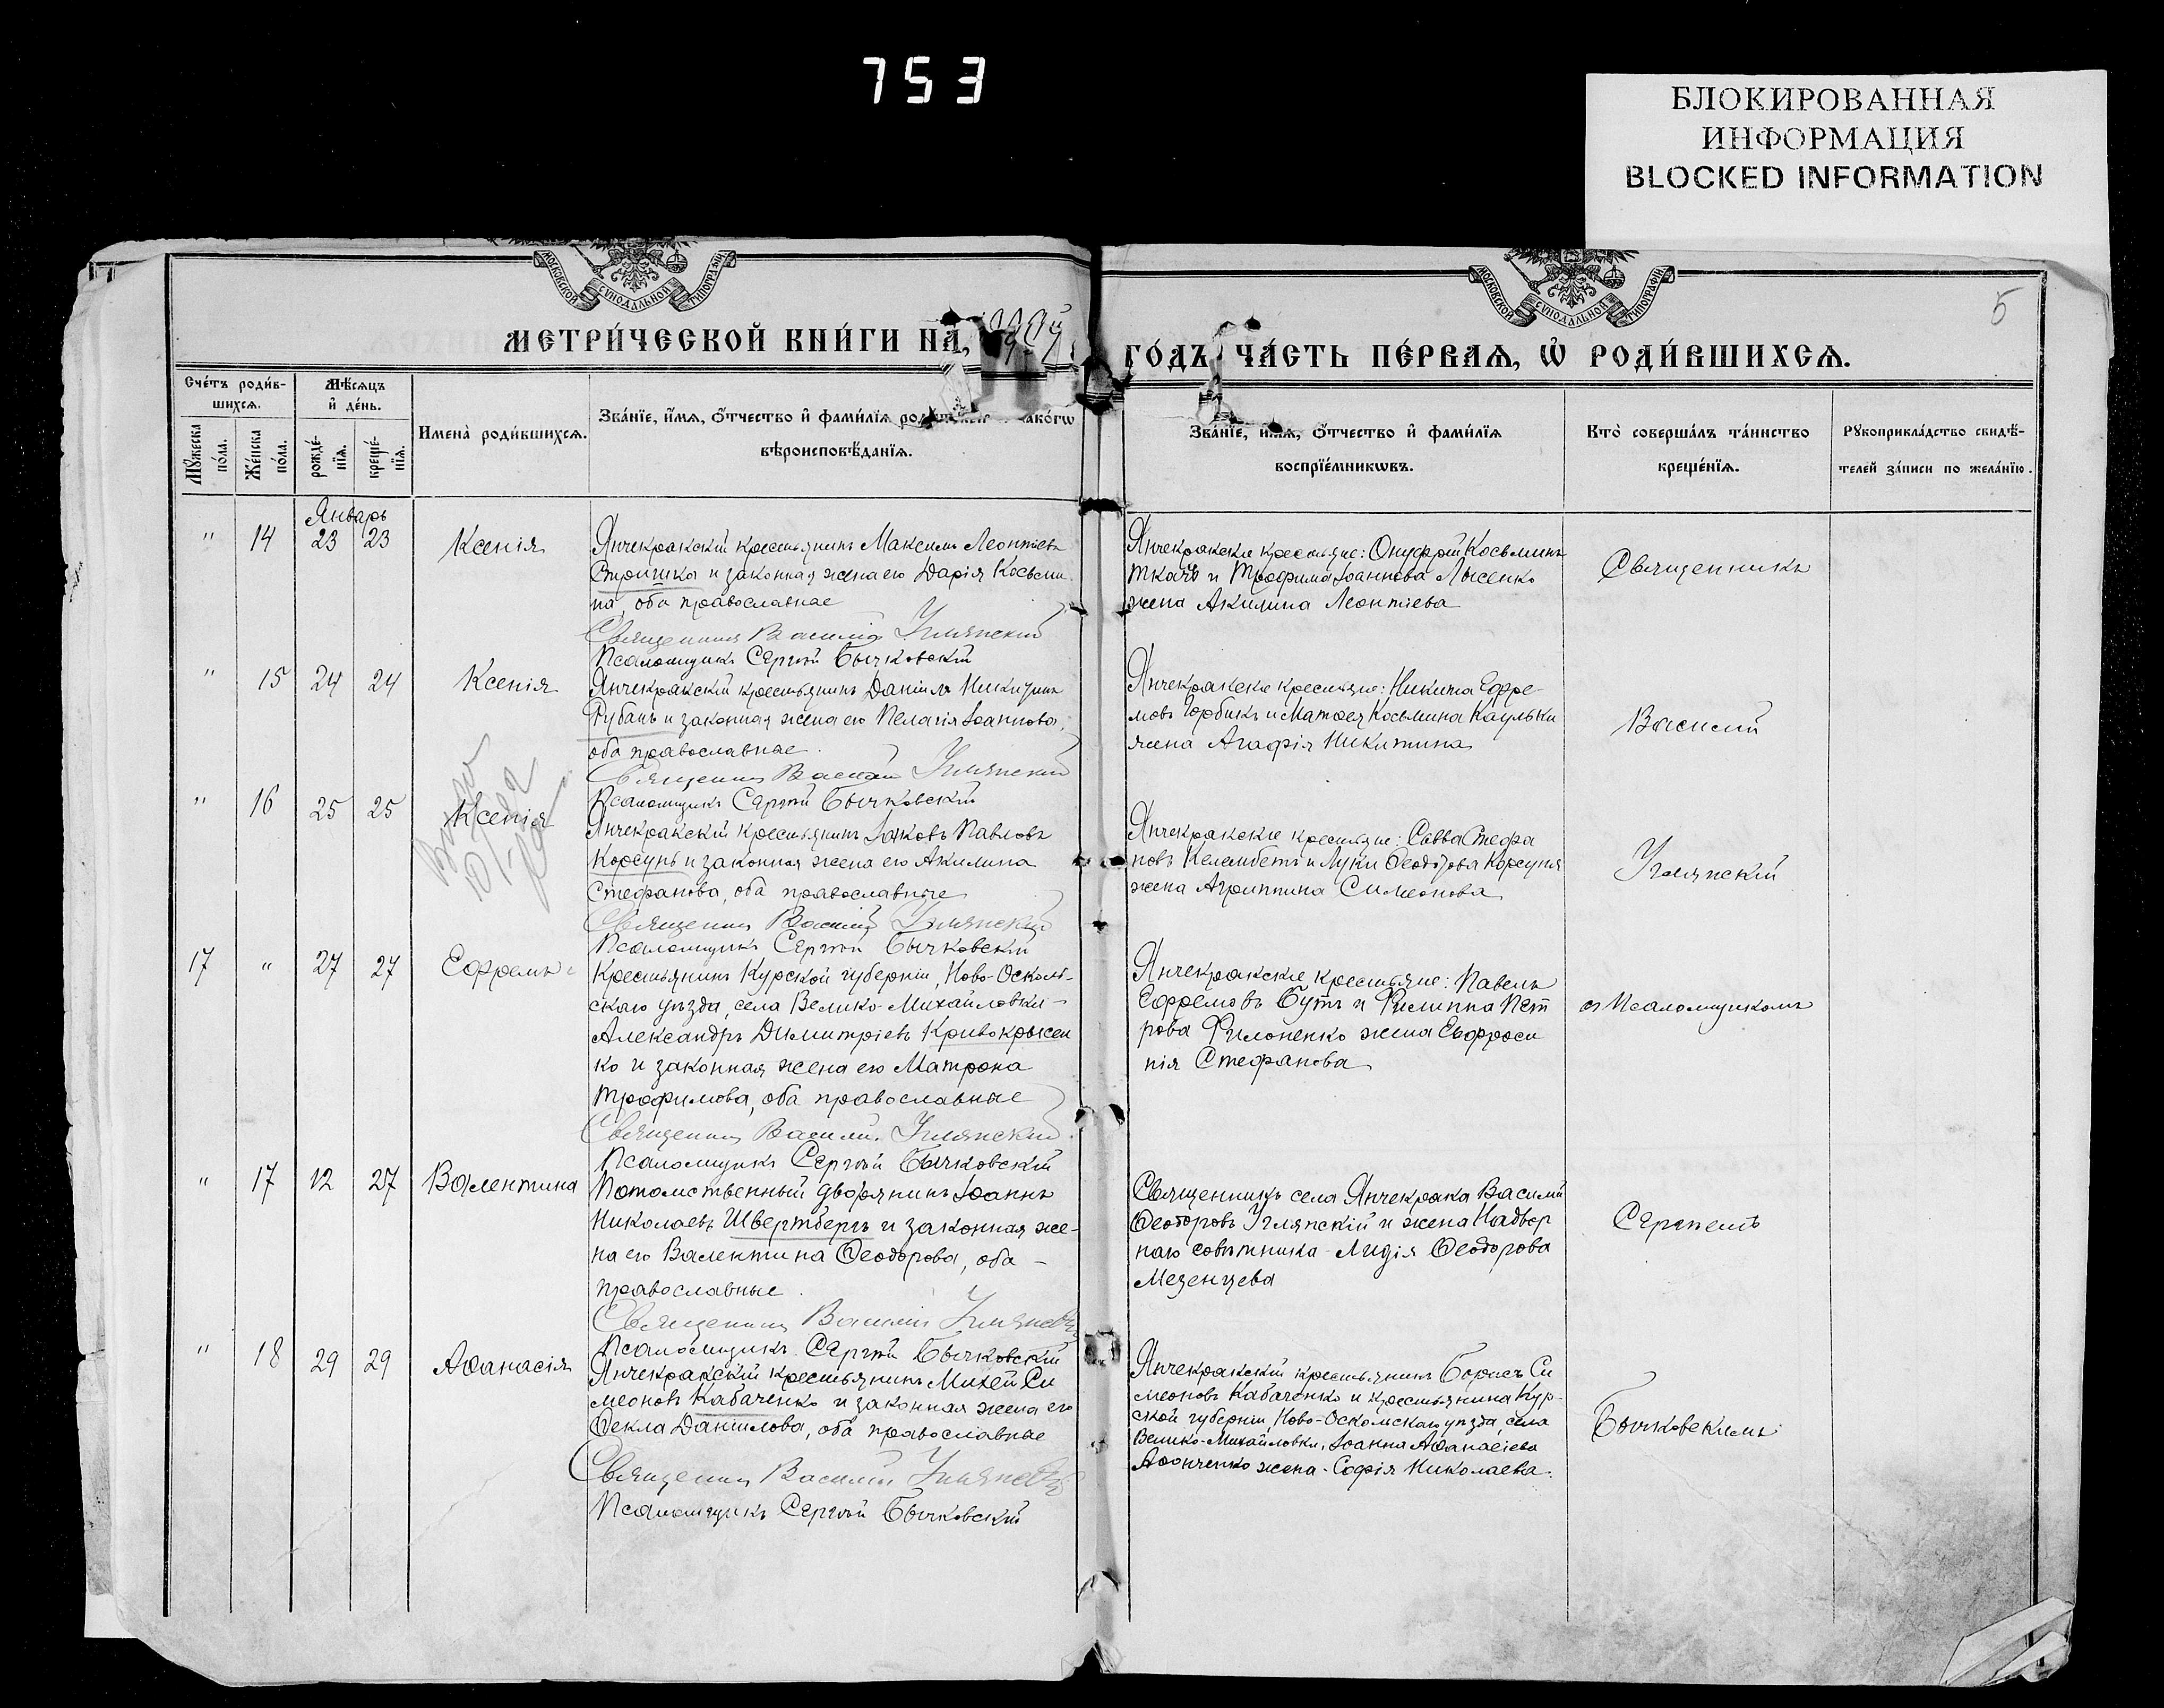 753
БЛОКИРОВАННАЯ
ИНФОРМАЦИЯ
BLOCKED INFORMATION
МОСКОВСКОЙ СѴНОДАЛЬНОЙ ТИПОГРАФІИ
МОСКОВСКОЙ СѴНОДАЛЬНОЙ ТИПОГРАФІИ
5
МЕТРИ́ЧЕСКОЙ КНИ́ГИ НА̀
ГО́ДЪ ЧА́СТЬ ПЕ́РВАѦ, Ѡ҆ РОДИ́ВШИХСѦ.
Сче́тъ роди́в-
шихсѧ.
Мꙋ́жеска по́ла.
Же́нска по́ла.
Мѣ́сѧцъ
и҆ де́нь.
рожде́-
нїѧ.
креще́-
нїѧ.
И҆мена̀ роди́вшихсѧ.
Зва́нїе, и҆́мѧ, ѻ҆́тчество и҆ фами́лїѧ
вѣроисповѣ́данїѧ.
Зва́нїе, и҆́мѧ, ѻ҆́тчество и҆ фами́лїѧ
воспрїе́мникѡвъ.
Кто̀ соверша́лъ та́инство
креще́нїѧ.
Рꙋкоприкла́дство свидѣ́-
телей за́писи по жела́нїю.
Январь
" 14 23 23 Ксенія
Янчекракскій крестьянинъ Максимъ Леонтіевъ
Стришка и законная жена его Дарія Косьми-
на, оба православные
Священникъ Василій Углянскій
Псаломщикъ Сергѣй Бычковскій
Янчекракскіе крестьяне: Онуфрій Косьминъ
Ткачъ и Трофима Іоаннова Лысенко
жена Акилина Леонтіева
Священникъ
" 15 24 24 Ксенія
Янчекракскій крестьянинъ Даніилъ Никитинъ
Рубанъ и законная жена его Пелагія Іоаннова,
оба православные.
Священникъ Василій Углянскій
Псаломщикъ Сергѣй Бычковскій
Янчекракскіе крестьяне: Никита Ефре-
мовъ Горбикъ и Матѳея Косьмина Каульки
жена Агафія Никитина
Василій
" 16 25 25 Ксенія
Янчекракскій крестьянинъ Іаковъ Павловъ
Корсунь и законная жена его Акилина
Стефанова, оба православные
Священникъ Василій Углянскій
Псаломщикъ Сергѣй Бычковскій
Янчекракскіе крестьяне: Савва Стефа
новъ Келембетъ и Луки Ѳеодорова Корсуня
жена Агриппина Симеонова
Углянскій
17 " 27 27 Ефремъ
Крестьянинъ Курской губерніи, Ново-Осколь-
скаго уѣзда, села Велико-Михайловки-
Александръ Димитріевъ Кривокрысен
ко и законная жена его Матрона
Трофимова, оба православные
Священникъ Василій Углянскій
Псаломщикъ Сергѣй Бычковскій
Янчекракскіе крестьяне: Павелъ
Ефремовъ Бутъ и Филиппа Пет
рова Филоненко жена Евфроси
нія Стефанова
съ Псаломщикомъ
" 17 12 27 Валентина
Потомственный дворянинъ Іоаннъ
Николаевъ Швертбергъ и законная же-
на его Валентина Ѳеодорова, оба -
православные.
Священникъ Василій Углянскій
Псаломщикъ Сергѣй Бычковскій
Священникъ села Янчекрака Василій
Ѳеодоровъ Углянскій и жена Надвор
наго совѣтника - Лидія Ѳеодорова
Мезенцева
Сергѣемъ
" 18 29 29 Аѳанасія
Янчекракскій крестьянинъ Михей Си
меоновъ Кабаченко и законная жена его
Ѳекла Даніилова, оба православные
Священникъ Василій Углянскій
Псаломщикъ Сергѣй Бычковскій
Янчекракскій крестьянинъ Борисъ Си
меоновъ Кабаченко и крестьянина Кур-
ской губерніи, Ново-Оскольскаго уѣзда, села
Велико-Михайловки, Іоанна Аѳанасіева
Аѳонченко жена - Софія Николаева.
Бычковскимъ